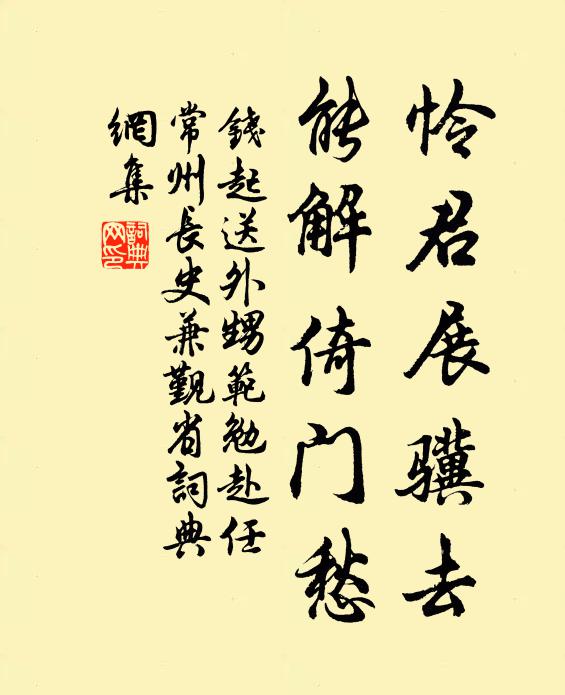 怜君展骥去
能解倚门愁
錢起送外甥範勉赴任
常州長史兼覲省詞典
網集
詞典網印